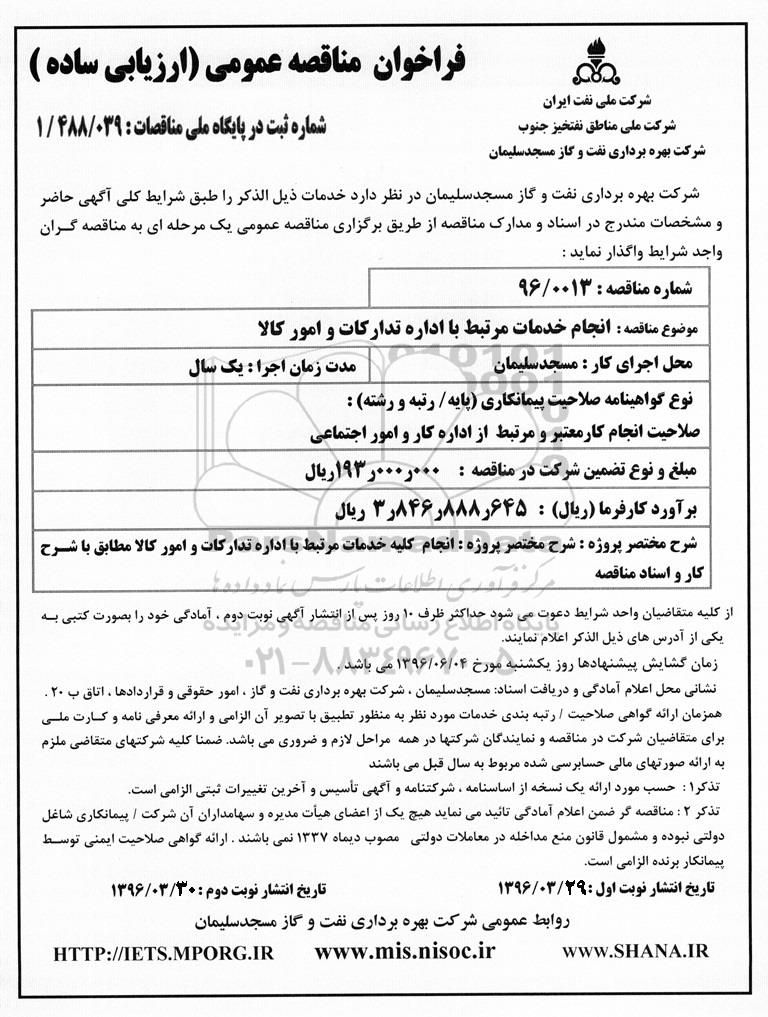 فراخوان مناقصه عمومی (ارزیابی ساده )
شماره ثبت در پایگاه ملی مناقصات : ۱ / ۴۸۸/۰۳۹
شرکت ملی نفت ایران
شرکت ملی مناطق نفتخیز جنوب
شرکت بهره برداری نفت و گاز مسجدسلیمان
شرکت بهره برداری نفت و گاز مسجدسلیمان در نظر دارد خدمات ذیل الذکر را طبق شرایط کلی آگهی حاضر
و مشخصات مندرج در اسناد و مدارک مناقصه از طریق برگزاری مناقصه عمومی یک مرحله ای به مناقصه گران
واجد شرایط واگذار نماید :
شماره مناقصه : ۹۶/۰۰۱۳
موضوع مناقصه : انجام خدمات مرتبط با اداره تدارکات و امور کالا
محل اجرای کار : مسجدسلیمان مدت زمان اجرا : یک سال
نوع گواهینامه صلاحیت پیمانکاری (پایه/ رتبه و رشته) :
صلاحیت انجام کارمعتبر و مرتبط از اداره کار و امور اجتماعی
مبلغ و نوع تضمین شرکت در مناقصه : ۱۹۳ر۰۰۰ر۰۰۰ریال
برآورد کارفرما (ریال) : ۳ر۸۴۶ر۸۸۸ر۶۴۵ ریال
شرح مختصر پروژه : شرح مختصر پروژه : انجام کلیه خدمات مرتبط با اداره تدارکات و امور کالا مطابق با شرح
کار و اسناد مناقصه
ParsNamadData
مرکز فرآوری اطلاعات پارس نماد داده ها
پایگاه اطلاع رسانی مناقصه و مزایده
۰۲۱-۸۸۳۴۹۶۷۰-۵
از کلیه متقاضیان واحد شرایط دعوت می شود حداکثر ظرف ۱۰ روز پس از انتشار آگهی نوبت دوم ، آمادگی خود را بصورت کتبی به
یکی از آدرس های ذیل الذکر اعلام نمایند.
زمان گشایش پیشنهادها روز یکشنبه مورخ ۱۳۹۶/۰۶/۰۴ می باشد .
نشانی محل اعلام آمادگی و دریافت اسناد: مسجدسلیمان ، شرکت بهره برداری نفت و گاز ، امور حقوقی و قراردادها ، اتاق ب ۲۰ .
همزمان ارائه گواهی صلاحیت / رتبه بندی خدمات مورد نظر به منظور تطبیق با تصویر آن الزامی و ارائه معرفی نامه و کارت ملی
برای متقاضیان شرکت در مناقصه و نمایندگان شرکتها در همه مراحل لازم و ضروری می باشد. ضمنا کلیه شرکتهای متقاضی ملزم
به ارائه صورتهای مالی حسابرسی شده مربوط به سال قبل می باشند
تذکر۱: حسب مورد ارائه یک نسخه از اساسنامه ، شرکتنامه و آگهی تأسیس و آخرین تغییرات ثبتی الزامی است.
تذکر ۲ : مناقصه گر ضمن اعلام آمادگی تائید می نماید هیچ یک از اعضای هیأت مدیره و سهامداران آن شرکت / پیمانکاری شاغل
دولتی نبوده و مشمول قانون منع مداخله در معاملات دولتی مصوب دیماه ۱۳۳۷ نمی باشند . ارائه گواهی صلاحیت ایمنی توسط
پیمانکار برنده الزامی است.
تاریخ انتشار نوبت اول : ۱۳۹۶/۰۳/۲۹ تاریخ انتشار نوبت دوم : ۱۳۹۶/۰۳/۳۰
روابط عمومی شرکت بهره برداری نفت و گاز مسجدسلیمان
HTTP://IETS.MPORG.IR www.mis.nisoc.ir WWW.SHANA.IR